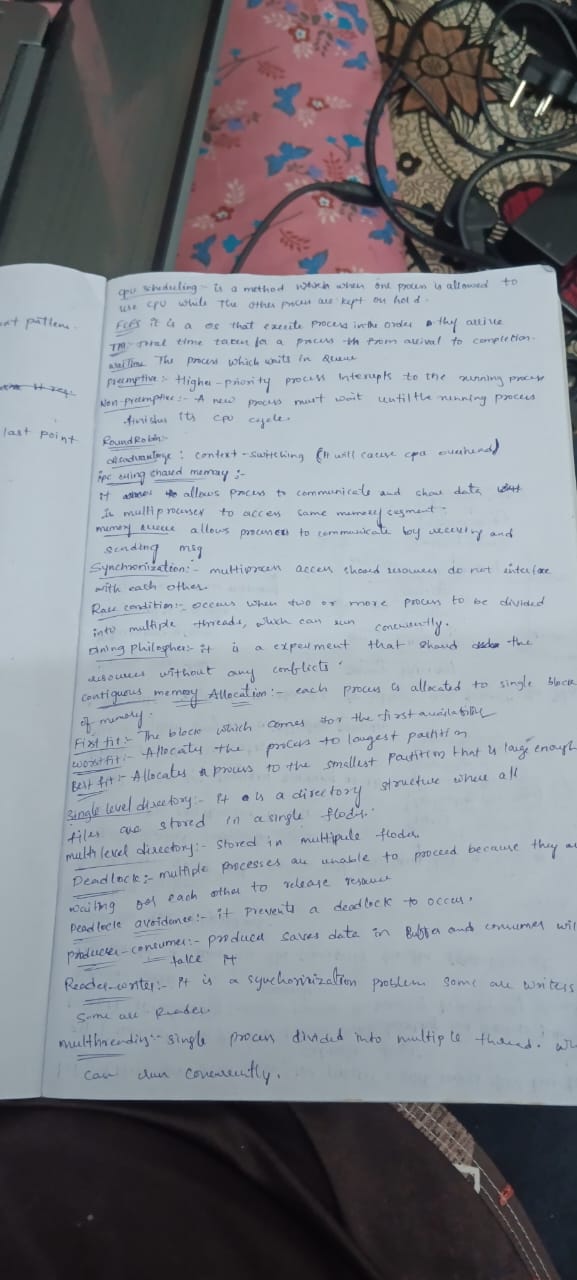 cpu scheduling - is a method which when one process is allowed to
use cpu while The other process are kept on hold.
FCFS it is a os that execute process in the order thy arrive
TAT - total time taken for a process from arrival to completion.
waiting The process which waits in Queue
preemptive :- Higher-priority process Interupts to the running process
Non-preemptive :- A new process must wait until the running process
finishes its cpu cycle.
last point
Round Robin :-
disadvantage : context-switching (it will cause cpu overhead)
ipc using shared memory :-
It allows process to communicate and share data
Is multi processer to access same memory segment.
memory allows processes to communicate by receiving and
sending msg
Synchronization :- multiprocess access shared resources do not interface
with each other.
Race condition :- occurs when two or more process to be divided
into multiple threads, which can run concurrently.
Dining Philospher :- it is a experiment that shared the
resources without any conflicts.
Contiguous memory Allocation :- each process is allocated to single block
of memory.
First fit :- The block which comes for the first availability
worst fit :- Allocates the process to largest partition
Best fit :- Allocates process to the smallest partition that is large enough
single level directory :- it is a directory structure where all
files are stored in a single
multi level directory :- stored in multipule
Deadlock :- multiple processes are unable to proceed because they
waiting for each other to release
Deadlock avoidance :- it prevents a deadlock to occur.
producer-consumer :- saves data in Buffer and consumer
take it
Reader-writer :- it is a problem some are writers
Some are Reader.
multhreading :- single process divided into multiple thread.
can run concurrently.